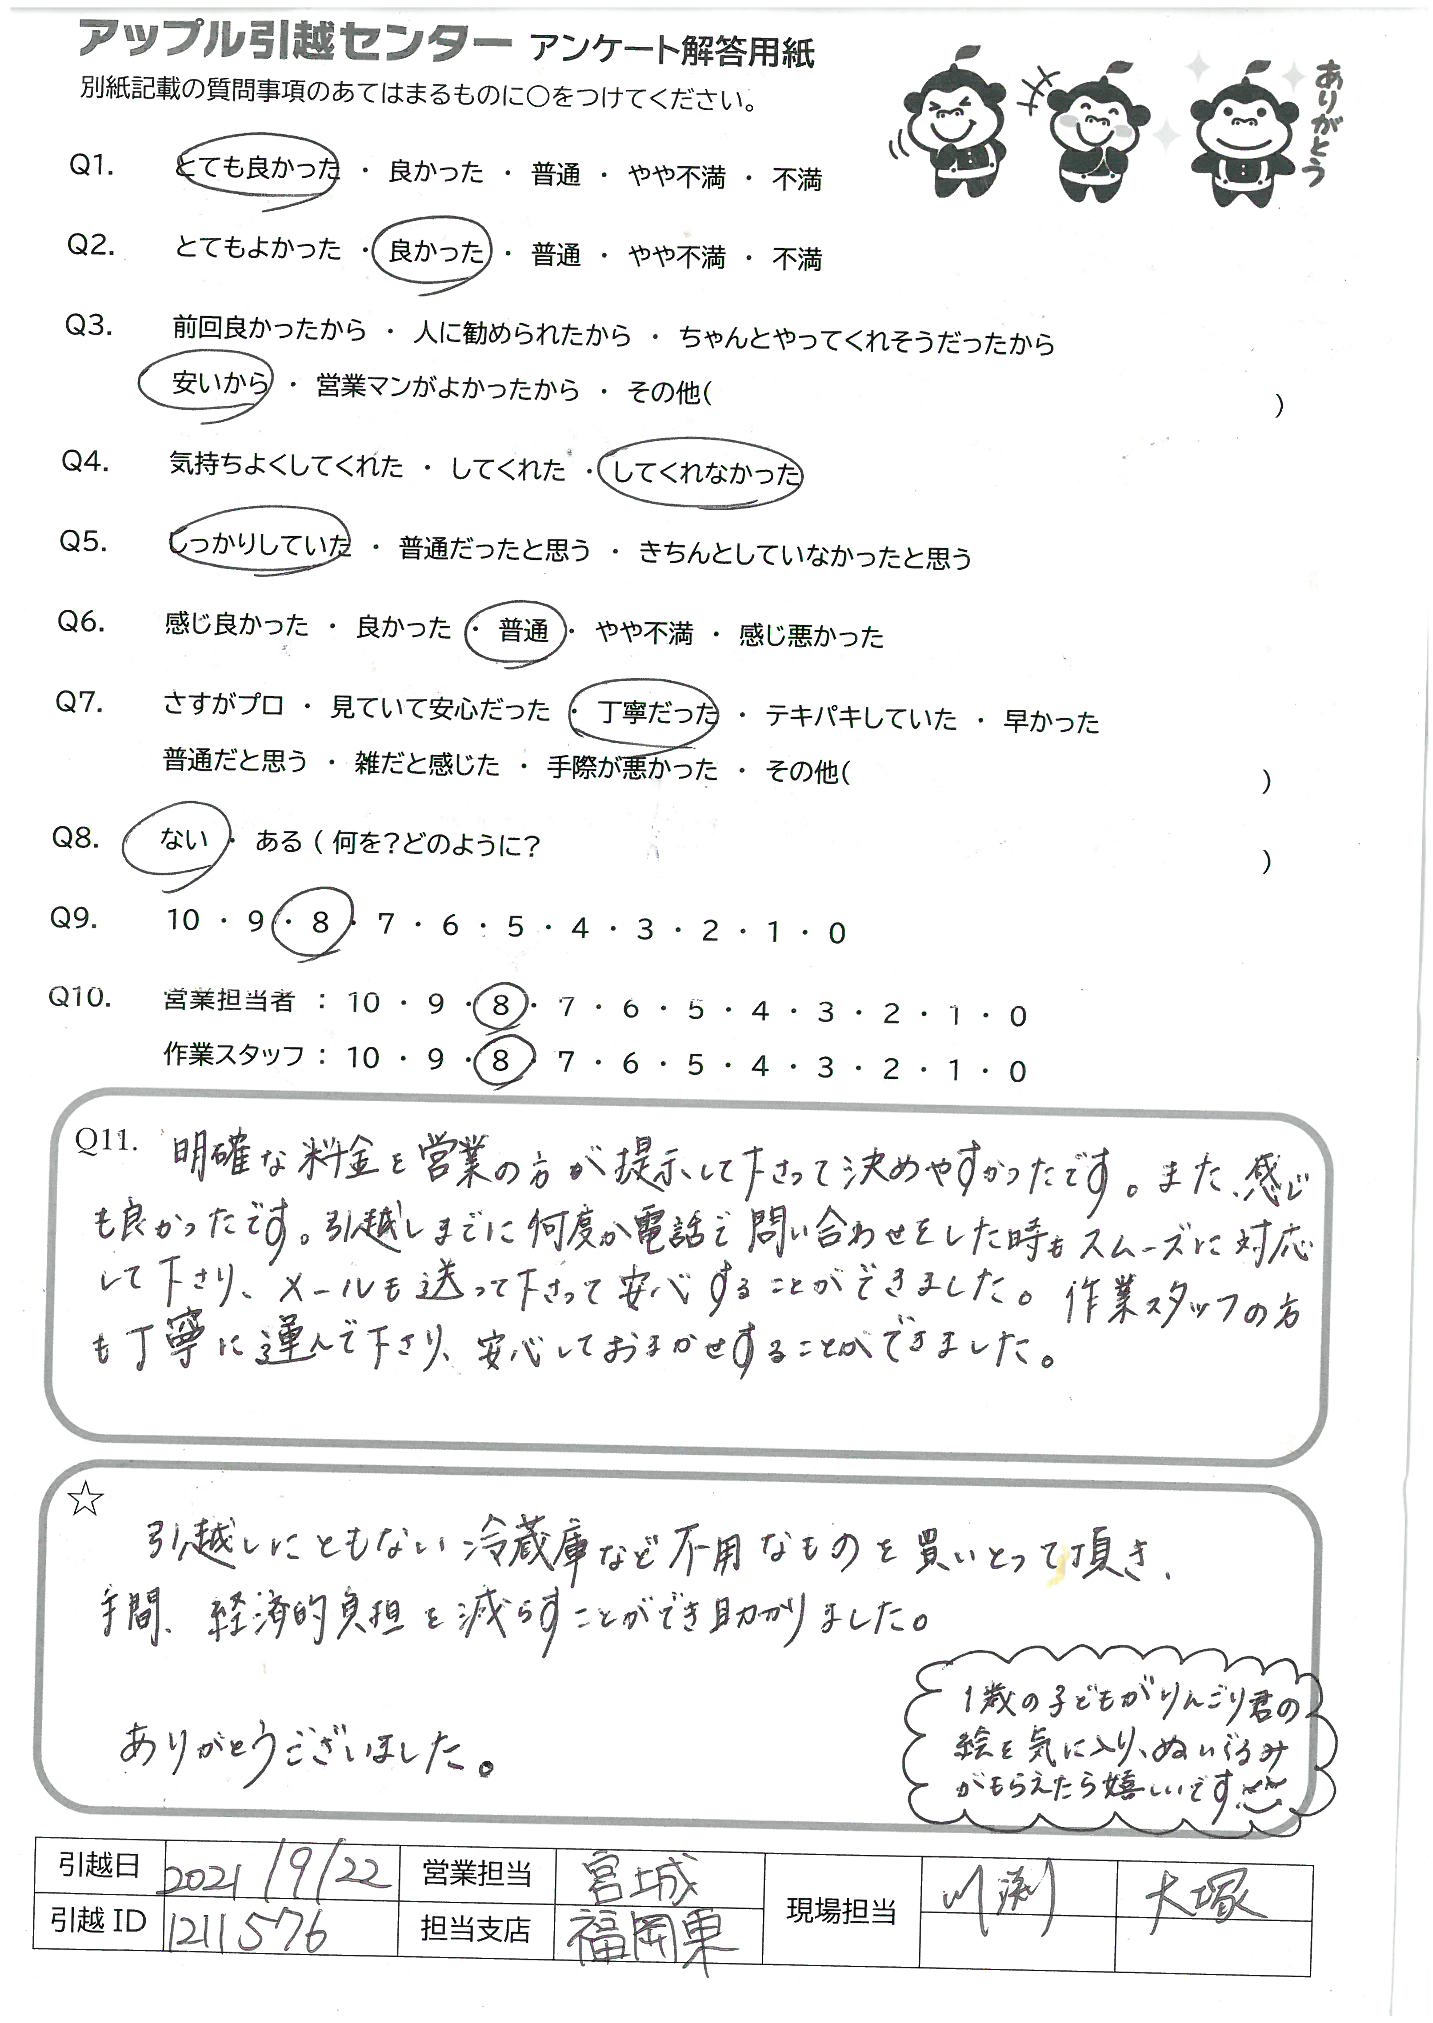 アップル引越センター アンケート解答用紙
別紙記載の質問事項のあてはまるものに○をつけてください。
ありがとう
Q1. とても良かった ・ 良かった ・ 普通 ・ やや不満 ・ 不満
Q2. とてもよかった ・ 良かった ・ 普通 ・ やや不満 ・ 不満
Q3. 前回良かったから ・ 人に勧められたから ・ ちゃんとやってくれそうだったから
安いから ・ 営業マンがよかったから ・ その他( )
Q4. 気持ちよくしてくれた ・ してくれた ・ してくれなかった
Q5. しっかりしていた ・ 普通だったと思う ・ きちんとしていなかったと思う
Q6. 感じ良かった ・ 良かった ・ 普通 ・ やや不満 ・ 感じ悪かった
Q7. さすがプロ ・ 見ていて安心だった ・ 丁寧だった ・ テキパキしていた ・ 早かった
普通だと思う ・ 雑だと感じた ・ 手際が悪かった ・ その他( )
Q8. ない ・ ある ( 何を?どのように? )
Q9. 10 ・ 9 ・ 8 ・ 7 ・ 6 ・ 5 ・ 4 ・ 3 ・ 2 ・ 1 ・ 0
Q10. 営業担当者 : 10 ・ 9 ・ 8 ・ 7 ・ 6 ・ 5 ・ 4 ・ 3 ・ 2 ・ 1 ・ 0
作業スタッフ : 10 ・ 9 ・ 8 ・ 7 ・ 6 ・ 5 ・ 4 ・ 3 ・ 2 ・ 1 ・ 0
Q11. 明確な料金を営業の方が提示して下さって決めやすかったです。また、感じ
も良かったです。引越しまでに何度か電話で問い合わせをした時もスムーズに対応
して下さり、メールも送って下さって安心することができました。作業スタッフの方
も丁寧に運んで下さり、安心しておまかせすることができました。
☆
引越しにともない冷蔵庫など不用なものを買いとって頂き、
手間、経済的負担を減らすことができ助かりました。
ありがとうございました。
1歳の子どもがりんごり君の
絵を気に入り、ぬいぐるみ
がもらえたら嬉しいです
引越日 2021/9/22 営業担当 宮城 現場担当 川渕 大塚
引越ID 1211576 担当支店 福岡東